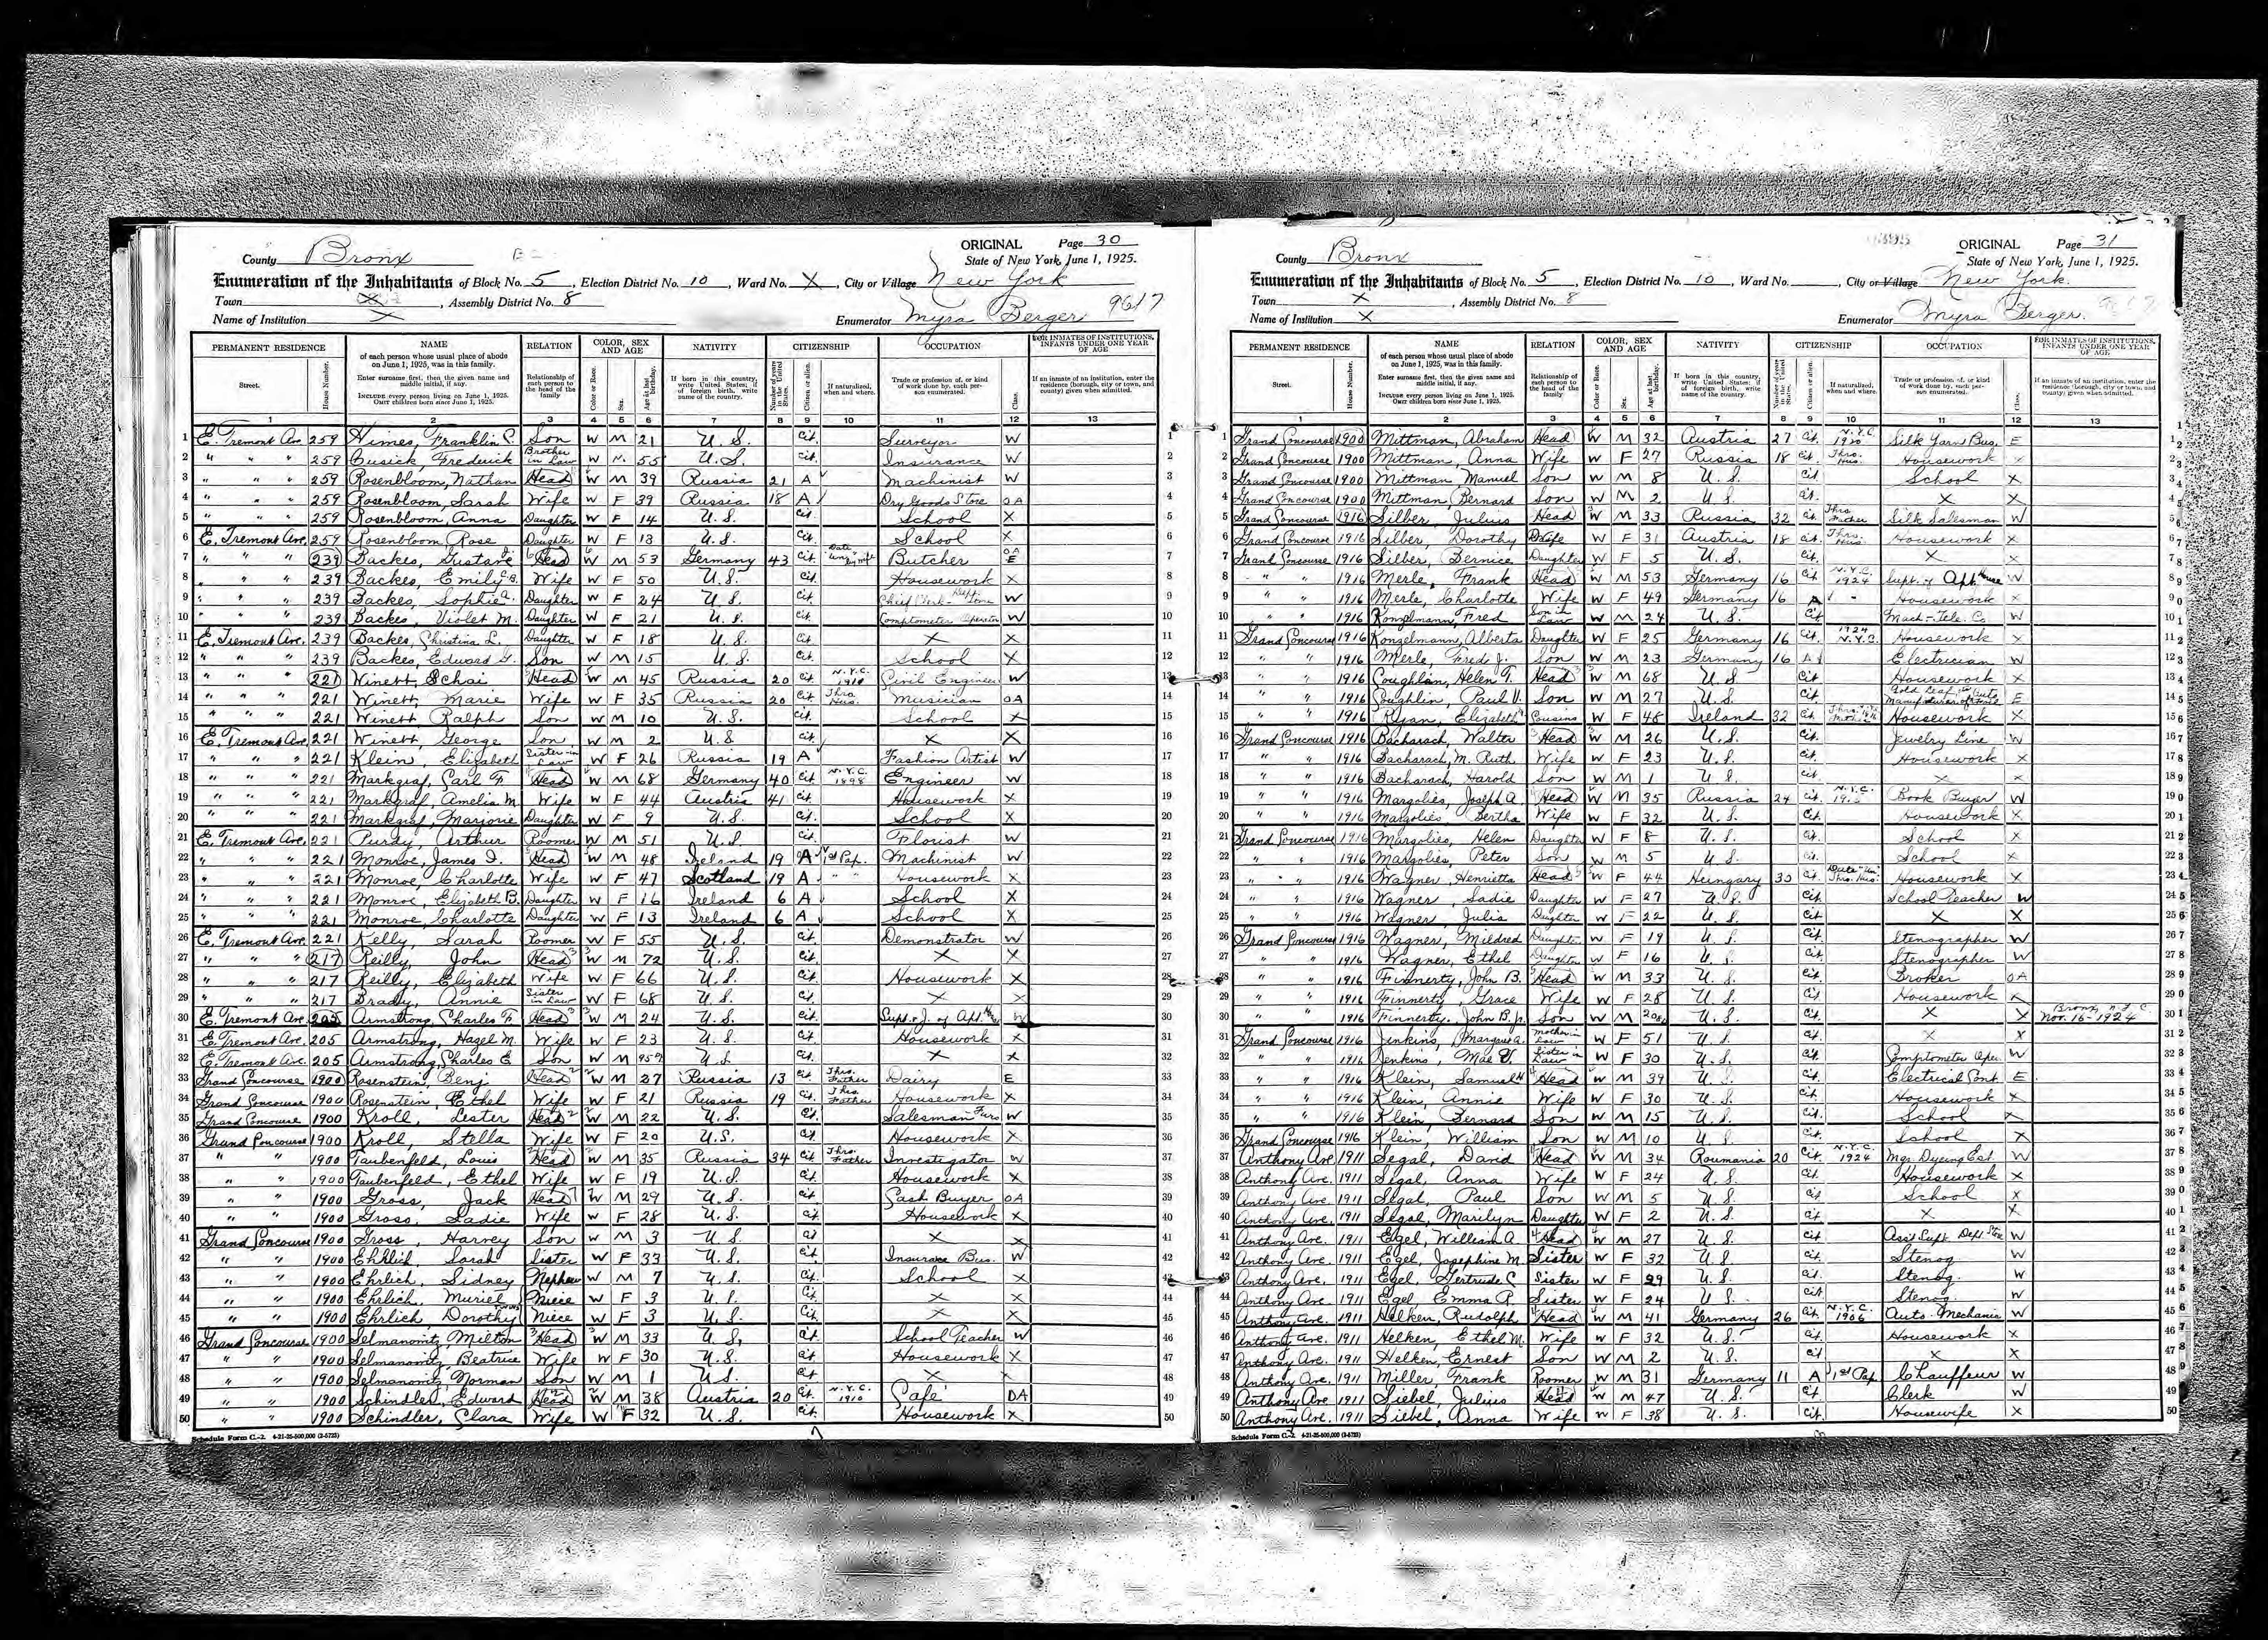 ORIGINAL Page 30
County Bronx State of New York, June 1, 1925.
Enumeration of the Inhabitants of Block No. 5, Election District No. 10, Ward No. X, City or Village New York
Town X, Assembly District No. 8
Name of Institution X Enumerator Myra Berger 9617
PERMANENT RESIDENCE NAME RELATION COLOR, SEX AND AGE NATIVITY CITIZENSHIP OCCUPATION FOR INMATES OF INSTITUTIONS, INFANTS UNDER ONE YEAR OF AGE
Street. House Number. of each person whose usual place of abode on June 1, 1925, was in this family. Enter surname first, then the given name and middle initial, if any. INCLUDE every person living on June 1, 1925. OMIT children born since June 1, 1925. Relationship of each person to the head of the family Color or Race. Sex. Age at last birthday. If born in this country, write United States; if of foreign birth, write name of the country. Number of years in the United States. Citizen or alien. If naturalized, when and where. Trade or profession of, or kind of work done by, each person enumerated. Class. If an inmate of an institution, enter the residence (borough, city or town, and county) given when admitted.
1 2 3 4 5 6 7 8 9 10 11 12 13
1 E. Tremont Ave 259 Himes, Franklin C. Son W M 21 U. S. Cit. Surveyor W
2 " " " 259 Cusick, Frederick Brother in Law W M 55 U. S. Cit. Insurance W
3 " " " 259 Rosenbloom, Nathan Head W M 39 Russia 21 A Machinist W
4 " " " 259 Rosenbloom, Sarah Wife W F 39 Russia 18 A Dry Goods Store OA
5 " " " 259 Rosenbloom, Anna Daughter W F 14 U. S. Cit. School X
6 E. Tremont Ave. 259 Rosenbloom, Rose Daughter W F 13 U. S. Cit. School X
7 " " " 239 Backes, Gustave Head W M 53 Germany 43 Cit. Butcher OA E
8 " " " 239 Backes, Emily Wife W F 50 U. S. Cit. Housework X
9 " " " 239 Backes, Sophie a. Daughter W F 24 U. S. Cit. Chief Clerk - Dept. Store W
10 " " " 239 Backes, Violet M. Daughter W F 21 U. S. Cit. Comptometer Operator W
11 E. Tremont Ave. 239 Backes, Christina L. Daughter W F 18 U. S. Cit X X
12 " " " 239 Backes, Edward G. Son W M 15 U. S. Cit. School X
13 " " " 221 Winett, Schai Head W M 45 Russia 20 Cit N.Y.C. 1910 Civil Engineer W
14 " " " 221 Winett, Marie Wife W F 35 Russia 20 Cit Thro. Hus. Musician OA
15 " " " 221 Winett Ralph Son W M 10 U. S. Cit. School X
16 E. Tremont Ave 221 Winett, George Son W M 2 U. S Cit X X
17 " " " 221 Klein, Elizabeth Sister-in Law W F 26 Russia 19 A Fashion Artist W
18 " " " 221 Markgraf, Carl F. Head W M 68 Germany 40 Cit N.Y.C. 1898 Engineer W
19 " " " 221 Markgraf, Amelia M. Wife W F 44 Austria 41 Cit. Housework X
20 " " " 221 Markgraf, Marjorie Daughter W F 9 U. S. Cit. School X
21 E. Tremont Ave. 221 Purdy, Arthur Roomer W M 51 U. S. Cit. Florist W
22 " " " 221 Monroe, James D. Head W M 48 Ireland 19 A 1st Pap. Machinist W
23 " " " 221 Monroe, Charlotte Wife W F 47 Scotland 19 A " " Housework X
24 " " " 221 Monroe, Elizabeth B. Daughter W F 16 Ireland 6 A School X
25 " " " 221 Monroe, Charlotte Daughter W F 13 Ireland 6 A School X
26 E. Tremont Ave. 221 Kelly, Sarah Roomer W F 55 U. S. Cit. Demonstrator W
27 " " " 217 Reilly, John Head W M 72 U. S. Cit. X X
28 " " " 217 Reilly, Elizabeth Wife W F 66 U. S. Cit. Housework X
29 " " " 217 Brady, Annie Sister in Law W F 68 U. S. Cit. X X
30 E. Tremont Ave. 205 Armstrong, Charles F. Head W M 24 U. S. Cit. Supt. of Apt. W
31 E. Tremont Ave. 205 Armstrong, Hazel M. Wife W F 23 U. S. Cit. Housework X
32 E. Tremont Ave. 205 Armstrong, Charles E Son W M U. S. Cit. X X
33 Grand Concourse 1900 Rosenstein, Benj. Head W M 27 Russia 13 Cit. Thro. Father Dairy E
34 Grand Concourse 1900 Rosenstein, Ethel Wife W F 21 Russia 19 Cit. Thro. Father Housework X
35 Grand Concourse 1900 Kroll, Lester Head W M 22 U. S. Cit. Salesman Furs W
36 Grand Concourse 1900 Kroll, Stella Wife W F 20 U. S. Cit Housework X
37 " " 1900 Taubenfeld, Louis Head W M 35 Russia 34 Cit Thro. Father Investigator W
38 " " 1900 Taubenfeld, Ethel Wife W F 19 U. S. Cit. Housework X
39 " " 1900 Gross, Jack Head W M 29 U. S. Cit. Cash Buyer OA
40 " " 1900 Gross, Sadie Wife W F 28 U. S. Cit. Housework X
41 Grand Concourse 1900 Gross, Harvey Son W M 3 U. S Cit X X
42 " " 1900 Ehrlich, Sarah Sister W F 33 U. S. Cit. Insurance Bus. W
43 " " 1900 Ehrlich, Sidney Nephew W M 7 U. S. Cit. School X
44 " " 1900 Ehrlich, Muriel Niece W F 3 U. S. Cit X X
45 " " 1900 Ehrlich, Dorothy Niece W F 3 U. S. Cit. X X
46 Grand Concourse 1900 Selmanowitz, Milton Head W M 33 U. S. Cit School Teacher W
47 " " 1900 Selmanowitz, Beatrice Wife W F 30 U. S. Cit. Housework X
48 " " 1900 Selmanowitz, Norman Son W M 1 U. S. Cit. X X
49 " " 1900 Schindler, Edward Head W M 38 Austria 20 Cit. N.Y.C. 1910 Cafe OA
50 " " 1900 Schindler, Clara Wife W F 32 U. S. Cit. Housework X
Schedule Form C.-2. 4-21-25-500,000 (2-5723)
ORIGINAL Page 31
County Bronx State of New York, June 1, 1925.
Enumeration of the Inhabitants of Block No. 5, Election District No. 10, Ward No. , City or Village New York.
Town X, Assembly District No. 8
Name of Institution X Enumerator Myra Berger.
PERMANENT RESIDENCE NAME RELATION COLOR, SEX AND AGE NATIVITY CITIZENSHIP OCCUPATION FOR INMATES OF INSTITUTIONS, INFANTS UNDER ONE YEAR OF AGE
Street. House Number. of each person whose usual place of abode on June 1, 1925, was in this family. Enter surname first, then the given name and middle initial, if any. INCLUDE every person living on June 1, 1925. OMIT children born since June 1, 1925. Relationship of each person to the head of the family Color or Race. Sex. Age at last birthday. If born in this country, write United States; if of foreign birth, write name of the country. Number of years in the United States. Citizen or alien. If naturalized, when and where. Trade or profession of, or kind of work done by, each person enumerated. Class. If an inmate of an institution, enter the residence (borough, city or town, and county) given when admitted.
1 2 3 4 5 6 7 8 9 10 11 12 13
1 Grand Concourse 1900 Mittman, Abraham Head W M 32 Austria 27 Cit. N.Y.C. 1920 Silk Yarn Bus. E
2 Grand Concourse 1900 Mittman, Anna Wife W F 27 Russia 18 Cit. Thro. Hus. Housework X
3 Grand Concourse 1900 Mittman, Manuel Son W M 8 U. S. Cit School X
4 Grand Concourse 1900 Mittman, Bernard Son W M 2 U. S. Cit. X X
5 Grand Concourse 1916 Silber, Julius Head W M 33 Russia 32 Cit. Thro. Father Silk Salesman W
6 Grand Concourse 1916 Silber, Dorothy Wife W F 31 Austria 18 Cit. Thro. Hus. Housework X
7 Grand Concourse 1916 Silber, Bernice Daughter W F 5 U. S. Cit. X X
8 " " 1916 Merle, Frank Head W M 53 Germany 16 Cit N.Y.C. 1924 Supt. of Apt. House W
9 " " 1916 Merle, Charlotte Wife W F 49 Germany 16 A Housework X
10 " " 1916 Konzelmann, Fred Son in Law W M 24 U. S. Cit Mach-Tele. Co W
11 Grand Concourse 1916 Konzelmann, Alberta Daughter W F 25 Germany 16 Cit. 1924 N.Y.C. Housework X
12 " " 1916 Merle, Fred J. Son W M 23 Germany 16 A Electrician W
13 " " 1916 Coughlin, Helen T. Head W M 68 U. S Cit. Housework X
14 " " 1916 Coughlin, Paul V. Son W M 27 U. S. Cit. Gold Leaf E
15 " " 1916 Ryan, Elizabeth Cousins W F 48 Ireland 32 Cit. Housework X
16 Grand Concourse 1916 Bacharach, Walter Head W M 26 U. S. Cit. Jewelry Line W
17 " " 1916 Bacharach, M. Ruth Wife W F 23 U. S. Cit. Housework X
18 " " 1916 Bacharach, Harold Son W M 1 U. S. Cit. X X
19 " " 1916 Margolies, Joseph A. Head W M 35 Russia 24 Cit. N.Y.C. Book Buyer W
20 " " 1916 Margolies, Bertha Wife W F 32 U. S. Cit. Housework X
21 Grand Concourse 1916 Margolies, Helen Daughter W F 8 U. S. Cit. School X
22 " " 1916 Margolies, Peter Son W M 5 U. S. Cit. School X
23 " " 1916 Wagner, Henrietta Head W F 44 Hungary 30 Cit. Thro. Hus. Housework X
24 " " 1916 Wagner, Sadie Daughter W F 27 U. S. Cit. School Teacher W
25 " " 1916 Wagner, Julia Daughter W F 22 U. S. Cit. X X
26 Grand Concourse 1916 Wagner, Mildred Daughter W F 19 U. S. Cit. Stenographer W
27 " " 1916 Wagner, Ethel Daughter W F 16 U. S. Cit. Stenographer W
28 " " 1916 Finnerty, John B. Head W M 33 U. S. Cit Broker OA
29 " " 1916 Finnerty, Grace Wife W F 28 U. S. Cit. Housework X
30 " " 1916 Finnerty, John B. Jr. Son W M U. S. Cit. X X Bronx, N.Y.C Nov. 16-1924
31 Grand Concourse 1916 Jenkins, Margaret a. Mother in Law W F 51 U. S. Cit. X X
32 " " 1916 Jenkins, Mae V. Sister in Law W F 30 U. S. Cit. Comptometer Oper. W
33 " " 1916 Klein, Samuel H Head W M 39 U. S. Cit. Electrical Cont. E
34 " " 1916 Klein, Annie Wife W F 30 U. S. Cit. Housework X
35 " " 1916 Klein, Bernard Son W M 15 U. S. Cit. School X
36 Grand Concourse 1916 Klein, William Son W M 10 U. S. Cit School X
37 Anthony Ave 1911 Segal, David Head W M 34 Roumania 20 Cit. N.Y.C. 1924 Mgr. Dyeing Est. W
38 Anthony Ave. 1911 Segal, Anna Wife W F 24 U. S. Cit. Housework X
39 Anthony Ave. 1911 Segal, Paul Son W M 5 U. S. Cit School X
40 Anthony Ave. 1911 Segal, Marilyn Daughter W F 2 U. S. Cit X X
41 Anthony Ave. 1911 Egel, William A. Head W M 27 U. S. Cit. Ass't Supt. Dept. Store W
42 Anthony Ave. 1911 Egel, Josephine M. Sister W F 32 U. S Cit. Stenog W
43 Anthony Ave. 1911 Egel, Gertrude C. Sister W F 29 U. S. Cit. Stenog. W
44 Anthony Ave 1911 Egel Emma R. Sister W F 24 U. S. Cit. Stenog. W
45 Anthony Ave. 1911 Helken, Rudolph Head W M 41 Germany 26 Cit. N.Y.C. 1906 Auto. Mechanic W
46 Anthony Ave. 1911 Helken, Ethel M. Wife W F 32 U. S. Cit. Housework X
47 Anthony Ave. 1911 Helken, Ernest Son W M 2 U. S. Cit X X
48 Anthony Ave. 1911 Miller, Frank Roomer W M 31 Germany 11 A 1st Pap. Chauffeur W
49 Anthony Ave 1911 Siebel, Julius Head W M 47 U. S. Cit. Clerk W
50 Anthony Ave. 1911 Siebel, Anna Wife W F 38 U. S. Cit. Housewife X
Schedule Form C.-2. 4-21-25-500,000 (2-5723)